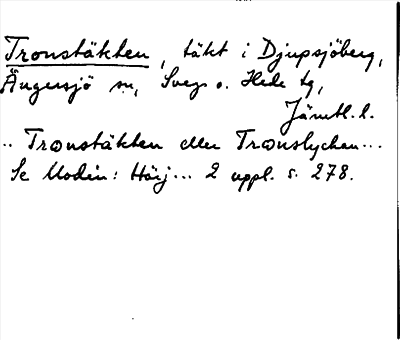 Tronstäkten, täkt i Djupsjöberg,
Ängersjö sn, Svegs o. Hede tg,
Jämtl. l.
.. Tronstäkten eller Tronslyckan...
Se Modin: Härj... 2 uppl. s. 278.